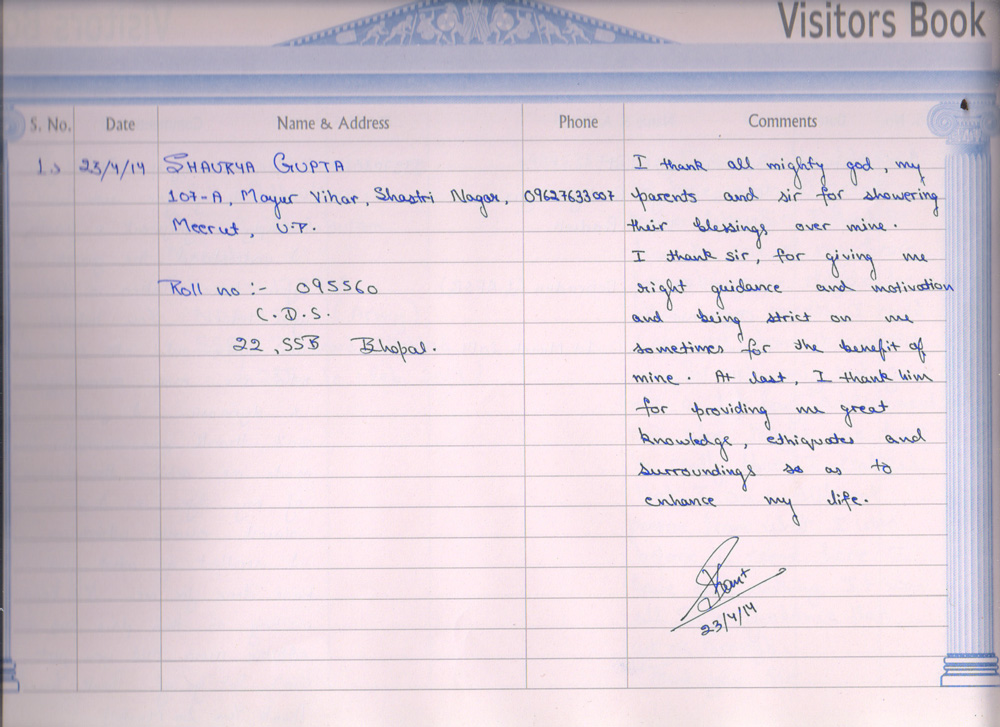 Visitors Book
S. No. Date Name & Address Phone Comments
1. 23/4/14 SHAURYA GUPTA
107-A, Mayur Vihar, Shastri Nagar, 09627633007
Meerut, U.P.
Roll no :- 095560
C.D.S.
22, SSB Bhopal.
I thank all mighty god, my
parents and sir for showering
their blessings over mine.
I thank sir, for giving me
right guidance and motivation
and being strict on me
sometimes for the benefit of
mine. At last, I thank him
for providing me great
knowledge, ethiquates and
surroundings so as to
enhance my life.
23/4/14